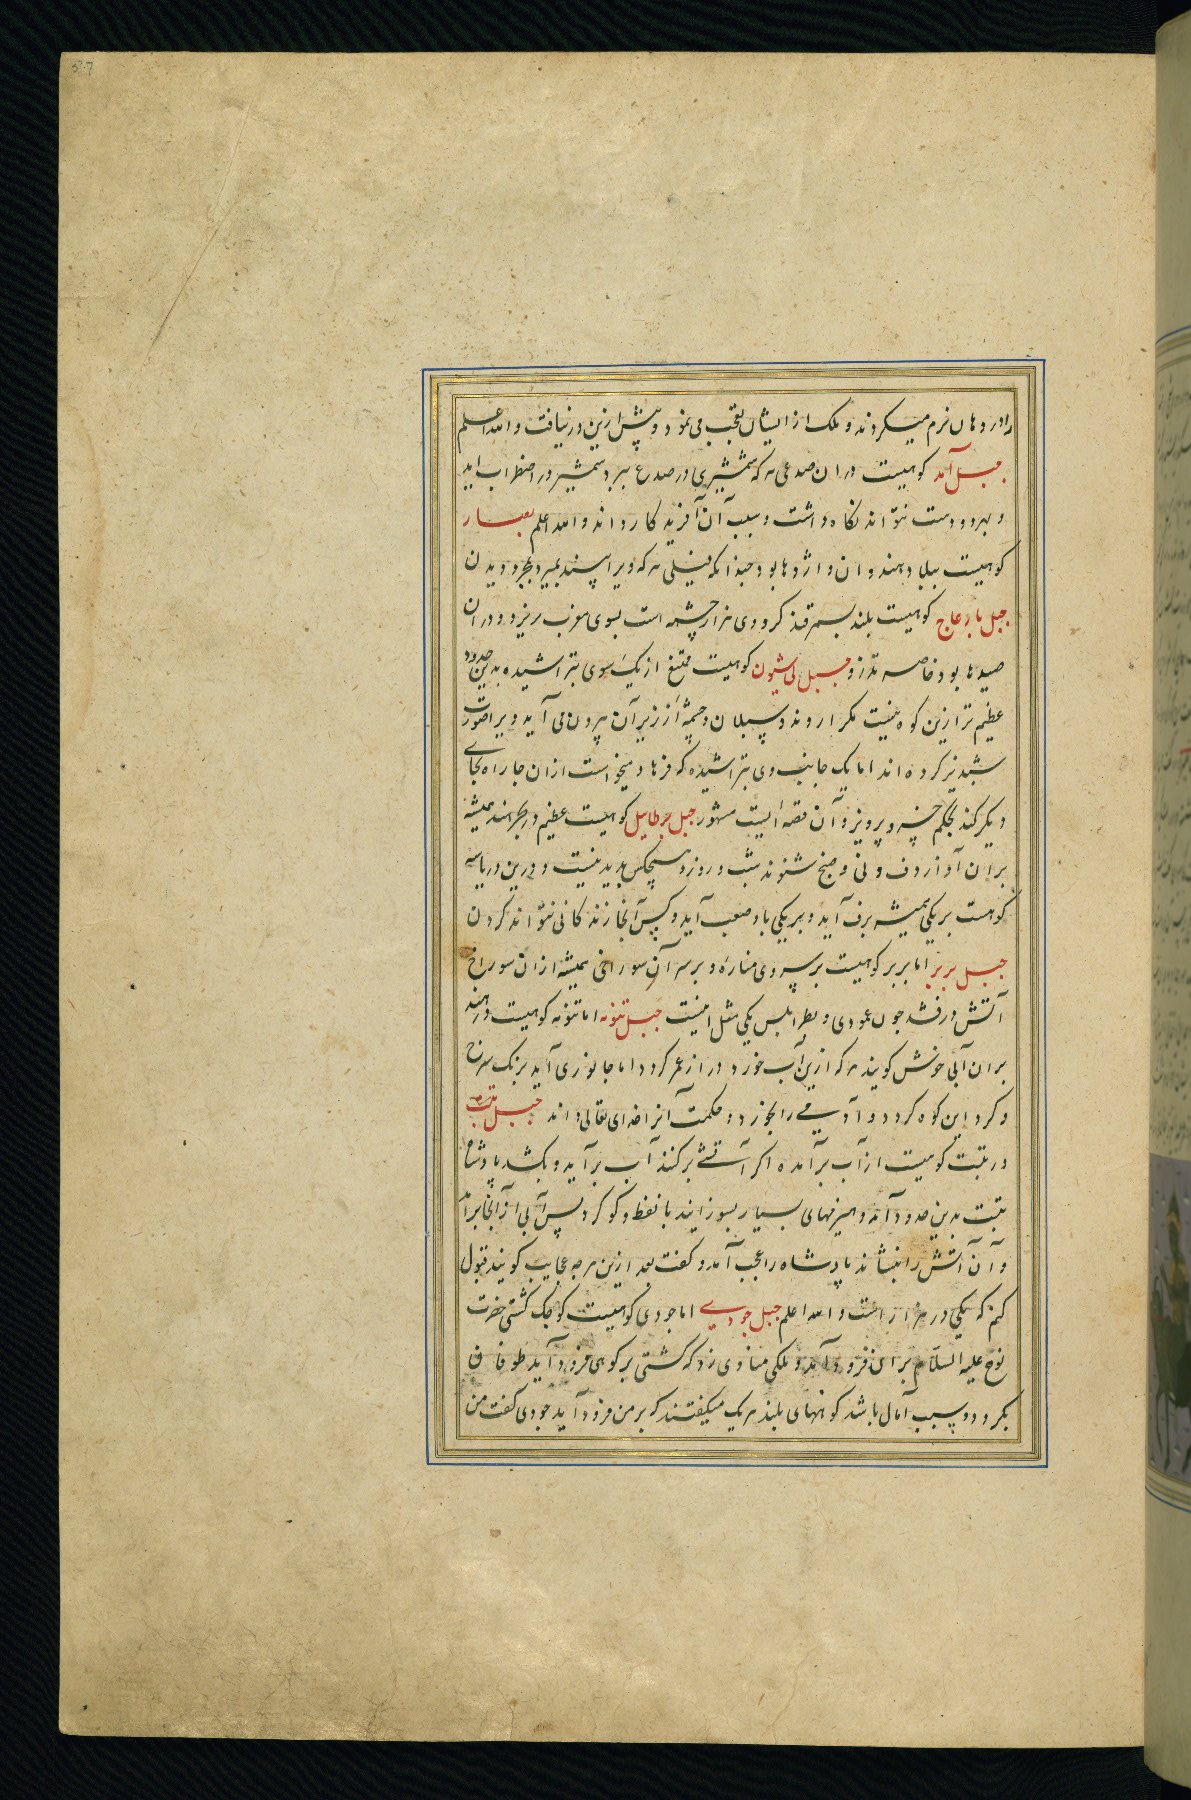 را در دهان نرم میکردند و ملک از ایشان تعجب می نمود و پیش ازین در نیافت و الله اعلم
جبل آمد کوهیست در ان صدعی هر که شمشیری در صدع برد شمشیر در اضطراب اید
و بهر دو دست نتواند نکاه داشت و سبب آن آفریدکار داند و الله اعلم
کوهیست ببلاد هند و ان و اژدها بود هر که ویرا بیند بمیرد
جبل کوهیست بلند بسمرقند کرد وی هزار چشمه است بسوی مغرب ریزد و در ان
صیدها بود خاصه تذرو جبل کوهیست ممتنع از یک سوی بتراشیده بدین حدود
عظیم تر ازین کوه نیست مکر اروند و سبلان و چشمۀ از زیر آن بیرون می آید ویرا صورت
شبدیز کرده اند اما یک جانب وی بتراشیده که فرهاد میخواست از ان جا راه بجای
دیکر کند بحکم خسرو پرویز و آن قصه ایست مشهور جبل کوهیست عظیم در بحر هند همیشه
بر ان آواز دف و نی و صنج شنوند شب و روز و هیچکس پدید نیست و درین دریا سه
کوهست بر یکی همیشه برف آید و بر یکی باد صعب آید و کس آنجا زندکانی نتواند کردن
جبل بربر اما بربر کوهیست بر سر وی مناره و بر سر آن سوراخی همیشه از ان سوراخ
آتش درفشد چون عمودی و بطرابلس یکی مثل اینست جبل اما کوهیست در هند
بر ان آبی خوش کویند هر که ازین آب خورد دراز عمر کردد اما جانوری آید بزنک سرخ
و کرد این کوه کردد و آدمی را بخورد و حکمت آنرا خدای تعالی داند جبل تبت
در تبت کوهیست از آب بر آمده اکر آتشی بر کنند آب بر آید و بکشد پادشاه
تبت بدین حدود آمد و هیزمهای بسیار بسوزانید با نفط و کوکرد پس آبی از آنجا بر آمد
و آن آتش را بنشاند پادشاه را عجب آمد و کفت بعد ازین هرچه عجایب کویند قبول
کنم که یکی در هزار است و الله اعلم جبل جودی اما جودی کوهیست کوچک کشتی حضرت
نوح علیه السلام بر ان فرود آمد و ملکی منادی زد که کشتی بر کوهی فرود آید طوفان
کوههای بلند هر یک میکفتند که بر من فرود آید جودی کفت من